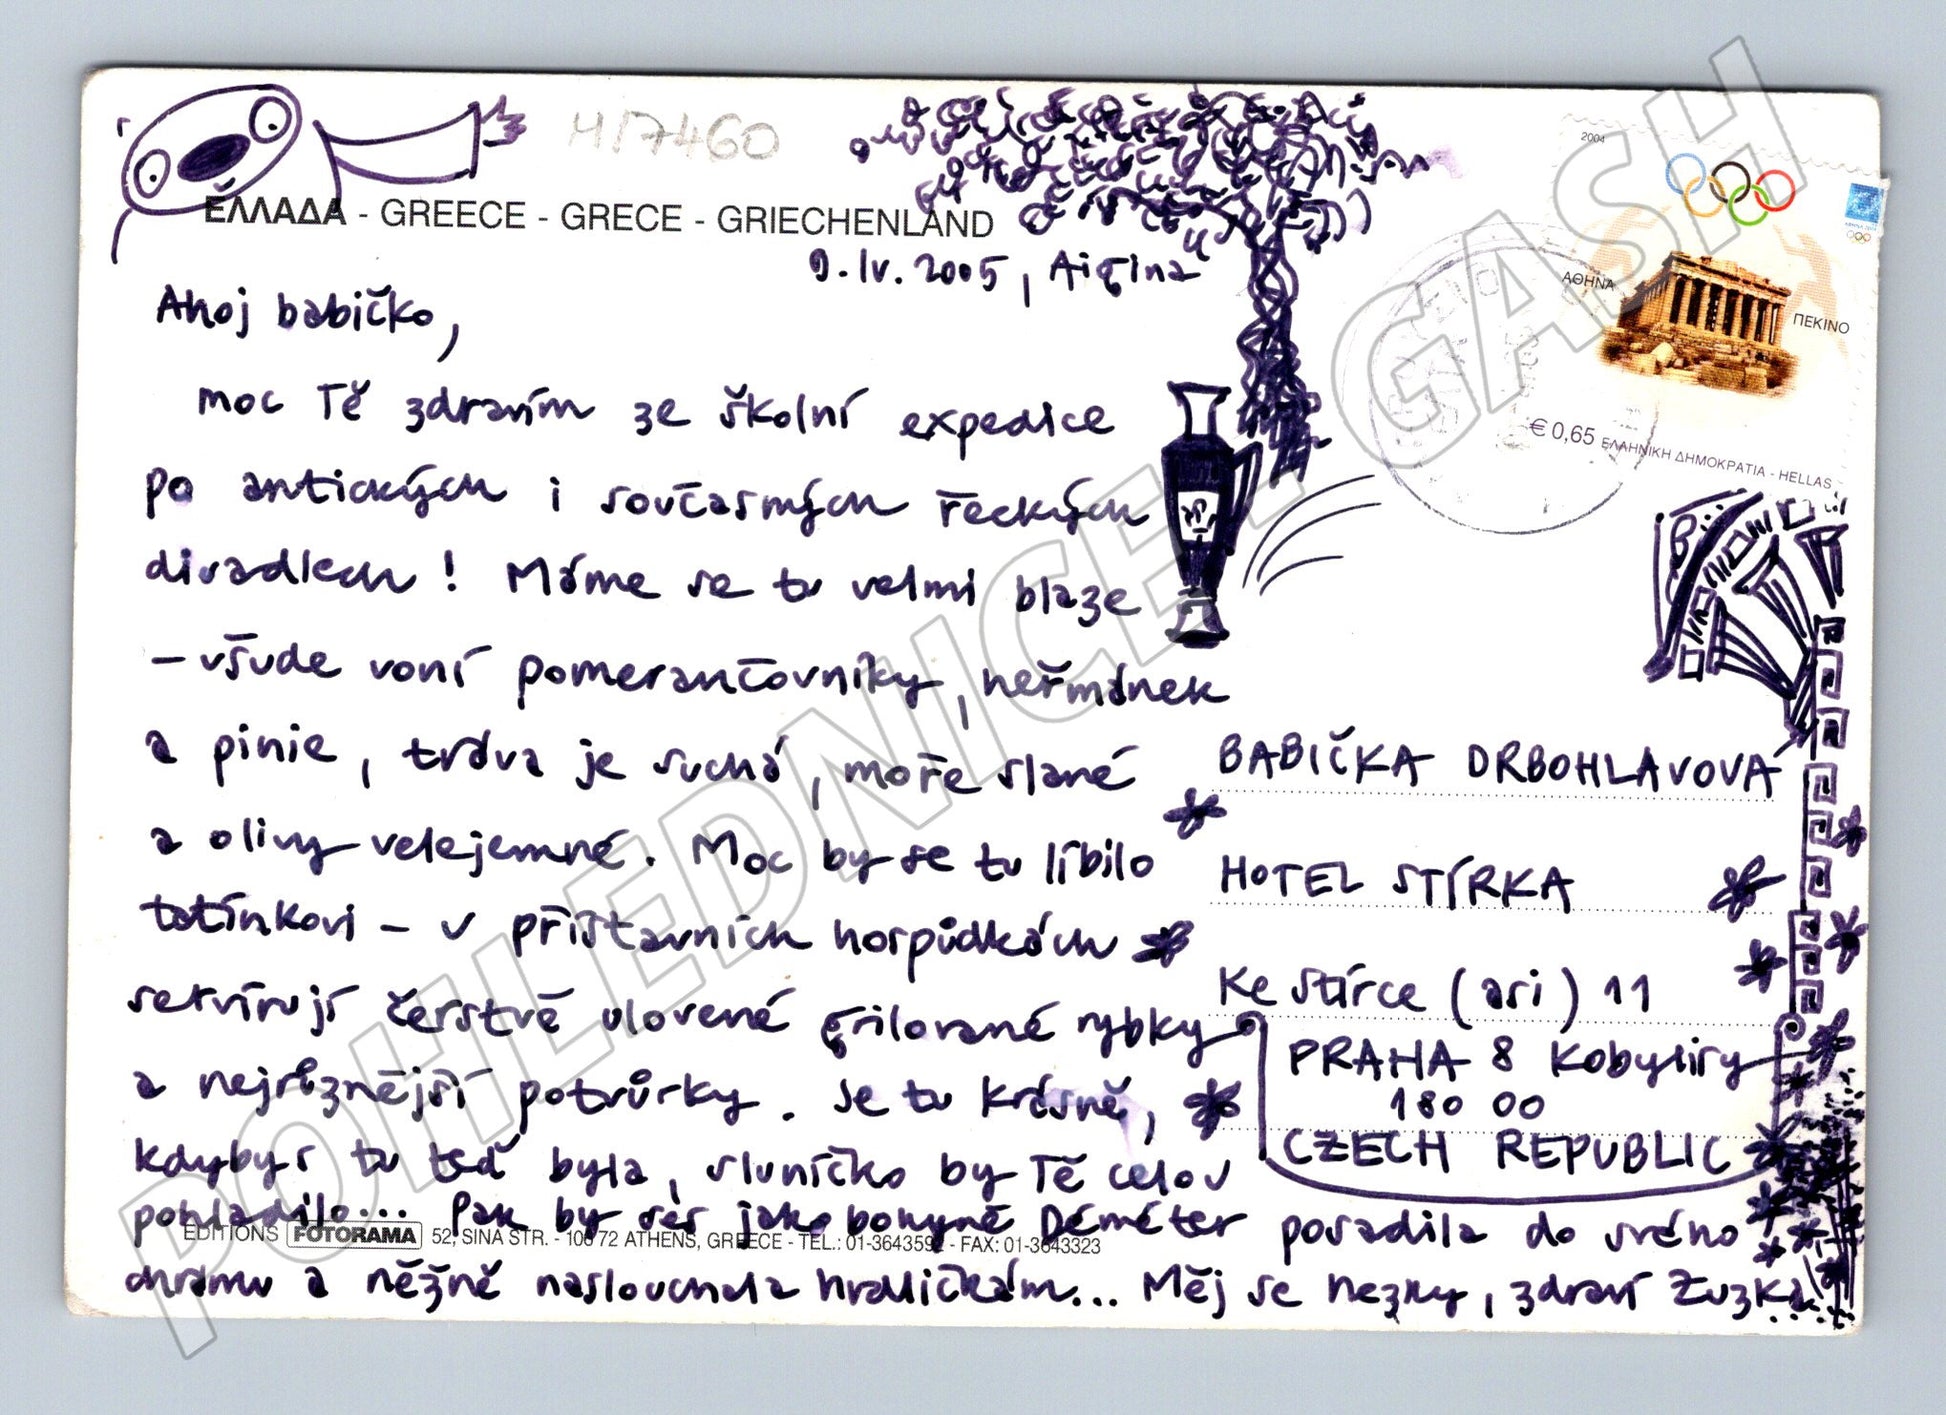 H17460
ΕΛΛΑΔΑ - GREECE - GRECE - GRIECHENLAND
9. IV. 2005, Aigina
Ahoj babičko,
moc Tě zdravím ze školní expedice
po antických i současných řeckých
divadlech! Máme se tu velmi blaze
– všude voní pomerančovníky, heřmánek
a pinie, tráva je suchá, moře slané
a olivy velejemné. Moc by se tu líbilo
tatínkovi – v přístavních hospůdkách
servírují čerstvě ulovené grilované rybky
a nejrůznější potvůrky. Je tu krásně,
kdybys tu teď byla, sluníčko by Tě celou
pohladilo... Pak by ses jako bohyně Démétér posadila do svého
chrámu a něžně naslouchala hrdličkám... Měj se hezky, zdraví Zuzka
EDITIONS FOTORAMA 52, SINA STR. - 106 72 ATHENS, GREECE - TEL.: 01-3643592 - FAX: 01-3643323
2004
ΑΘΗΝΑ
ΠΕΚΙΝΟ
€ 0,65 ΕΛΛΗΝΙΚΗ ΔΗΜΟΚΡΑΤΙΑ - HELLAS
BABIČKA DRBOHLAVOVA
HOTEL STÍRKA
Ke Stírce (asi) 11
PRAHA 8 Kobylisy
180 00
CZECH REPUBLIC
POHLEDNICE GASH